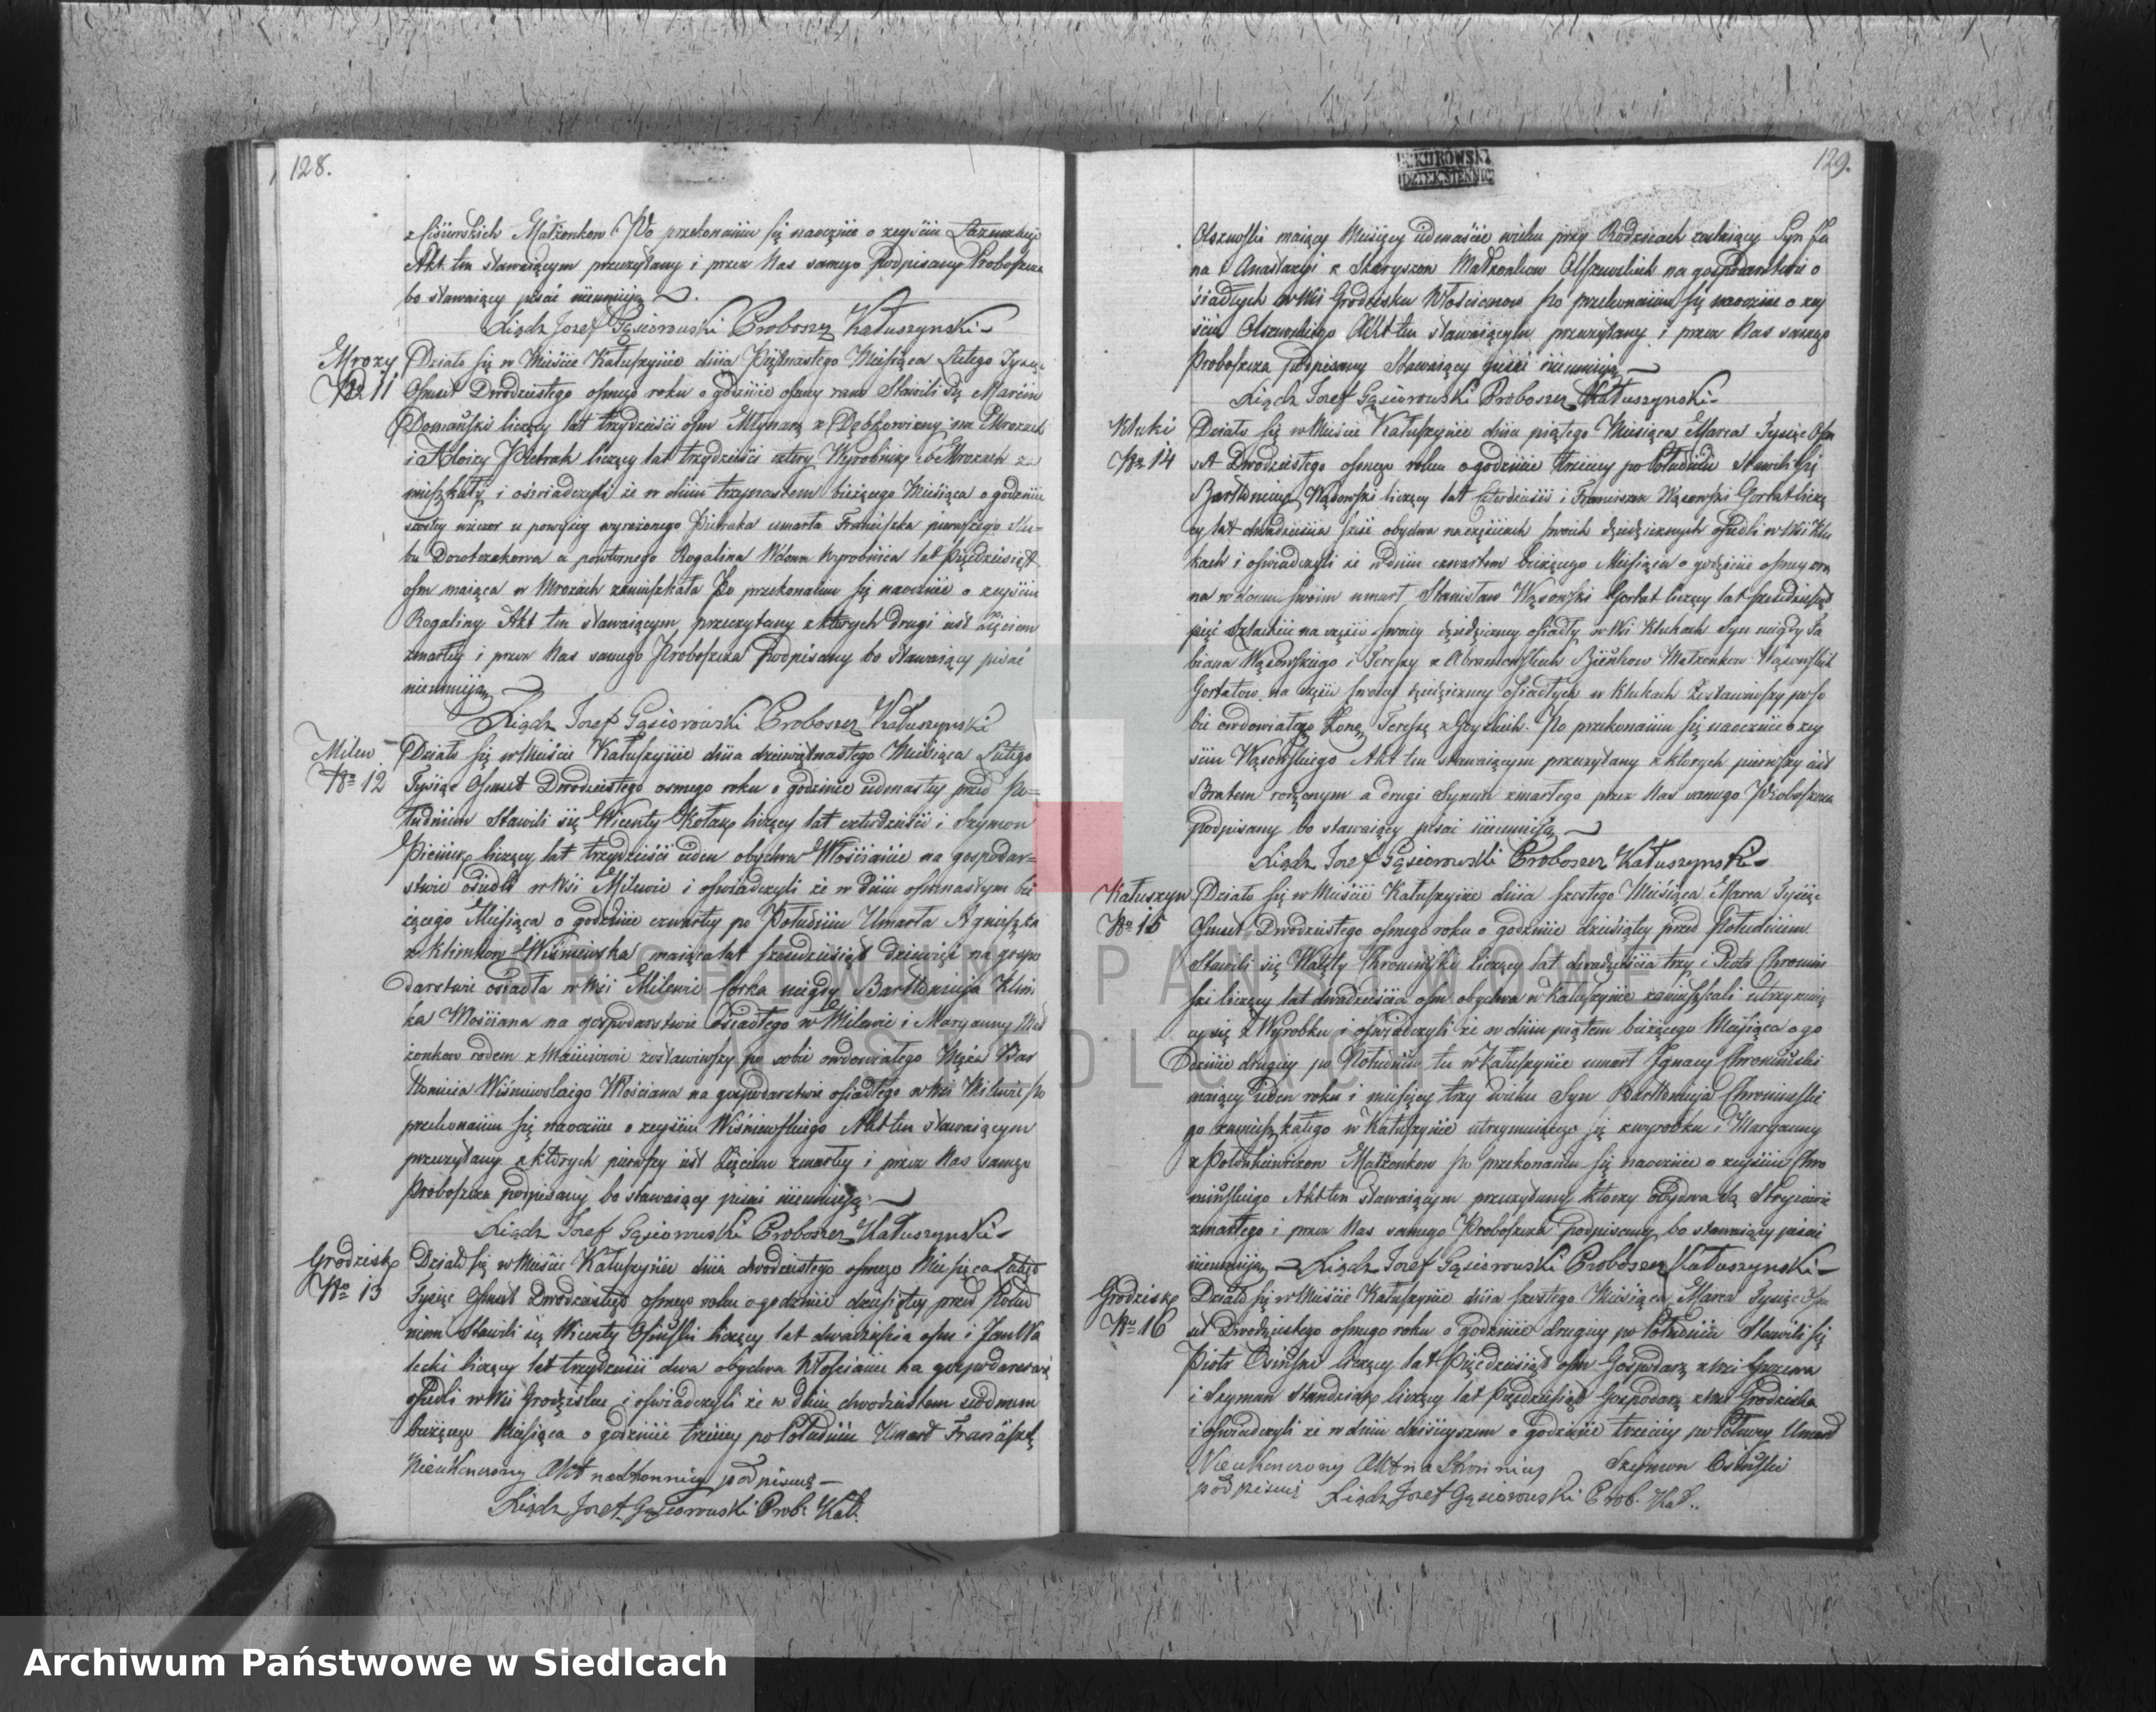 128.
z Lisiewskich Małżonkow. Po przekonaniu się naocznie o zeyściu
Akt ten stawaiącym przeczytany i przez Nas samego Podpisany Proboszcza
bo stawaiący pisać nieumieją
Xiądz Jozef Gąsiorowski Proboszcz Kałuszynski
Mrozy
No 11
Działo się w Mieście Kałuszynie dnia Piętnastego Miesiąca Lutego Tysiąc
Osmset Dwodziestego osmego roku o godzinie osmy rano Stawili się Marcin
Domański liczący lat trzydzieści osm Młynarz z Dębkowizny na Mrozach
i Aloizy Pietrak liczący lat trzydzieści cztery Wyrobnik we Mrozach za
mieszkały i oświadczyli że w dniu trzynastem bieżącego Miesiąca o godzinie
szostey wieczor u powyżey wyrażonego Pietraka umarła Franciszka pierwszego Slu-
bu Dorotczakowa a powtornego Rogalina Wdowa Wyrobnica lat Pięćdziesiąt
osm maiąca w Mrozach zamieszkała Po przekonaniu się naocznie o zeyściu
Rogaliny Akt ten stawaiącym przeczytany z ktorych drugi iest zięciem
zmarłey i przez Nas samego Proboszcza Podpisany bo stawaiący pisać
nieumieją
Xiądz Jozef Gąsiorowski Proboszcz Kałuszynski
Milew
No 12
Działo się w Mieście Kałuszynie dnia dziewiętnastego Miesiąca Lutego
Tysiąc Osmset Dwodziestego osmego roku o godzinie iedenastey przed Po-
łudniem Stawili się Wicenty Kołak liczący lat czterdzieści i Szymon
Pieńek liczący lat trzydzieści ieden obydwa Włościanie na gospodar-
stwie osiedli w Wsi Milewie i oświadczyli że w dniu osmnastym bie
żącego Miesiąca o godzinie czwartey po Południu Umarła Agnieszka
z Klimkow Wiśniewska maiąca lat sześćdziesiąt dziewięć na gospo
darstwie osiadła w Wsi Milewie Corka niegdy Bartłomieja Klim
ka Włościana na gospodarstwie osiadłego w Milewie i Maryanny Mał
żonkow rodem z zostawiwszy po sobie owdowiałego Męża Bar
tłomieia Wiśniewskiego Włościana na gospodarstwie osiadłego w Wsi Milewie po
przekonaniu się naocznie o zeyściu Wiśniewskiego Akt ten stawaiącym
przeczytany z ktorych pierwszy iest Zięciem zmarłey i przez Nas samego
Proboszcza podpisany bo stawaiący pisać nieumieją
Xiądz Jozef Gąsiorowski Proboszcz Kałuszynski
Grodzisk
No 13
Działo się w Mieście Kałuszynie dnia dwodziestego osmego Miesiąca Lutego
Tysiąc Osmset Dwodziestego osmego roku o godzinie dziesiątey przed Połud
niem Stawili się Wicenty Osiński liczący lat dwadzieścia osm i Jan Wa
lecki liczący lat trzydzieści dwa obydwa Włościanie na gospodarstwie
osiedli w Wsi Grodzisku i oświadczyli że w dniu dwodziestem siodmem
bieżącego Miesiąca o godzinie trzeciey po Południu Umarł Franciszek
Nieukonczony Akt na stronnicy podpisuię
Xiądz Jozef Gąsiorowski Prob. Kał.
129.
Olszewski maiący Miesięcy iedenaście wieku przy Rodzicach zostaiący Syn Ja
na i Anastazyi z Skaryszow Małżonkow Olszewskich na gospodarstwie o
siadłych w Wsi Grodzisku Włoscianow po przekonaniu się naocznie o zey
ściu Olszewskiego Akt ten stawaiącym przeczytany i przez Nas samego
Proboszcza podpisany Stawaiący pisać nieumieją
Xiądz Jozef Gąsiorowski Proboszcz Kałuszynski
Kluki
No 14
Działo się w Mieście Kałuszynie dnia piątego Miesiąca Marca Tysiąc Osm
set Dwodziestego osmego roku o godzinie trzeciey po Południu Stawili się
Bartłomiey Wąsowski liczący lat czterdzieści i Franciszek Wąsowski Gortat liczą
cy lat dwadzieścia sześć obydwa na częściach swoich dziedzicznych osiedli w Wsi Klu
kach i oświadczyli że w dniu czwartem bieżącego Miesiąca o godzinie osmey zra
na w domu swoim umarł Stanisław Wąsowski Gortat liczący lat sześćdziesiąt
pięć Szlachcic na części swoiey dziedziczney osiadły w Wsi Klukach Syn niegdy Fa
biana Wąsowskiego i Teressy z Abramowskich Małżonkow Wąsowskich
Gortatow na części swoiey dziedziczney osiadłych w Klukach Zostawiwszy po so
bie owdowiałą Żonę Teressę z Po przekonaniu się naocznie o zey
ściu Wąsowskiego Akt ten stawaiącym przeczytany z ktorych pierwszy iest
Bratem rodzonym a drugi Synem zmarłego przez Nas samego Proboszcza
podpisany bo stawaiący pisać nieumieją
Xiądz Jozef Gąsiorowski Proboszcz Kałuszynski
Kałuszyn
No 15
Działo się w Mieście Kałuszynie dnia szostego Miesiąca Marca Tysiąc
Osmset Dwodziestego osmego roku o godzinie dziesiątey przed Południem
Stawili się Walęty Chromiński liczący lat dwadzieścia trzy i Piotr Chromiń
ski liczący lat dwadzieścia osm obydwa w Kałuszynie zamieszkali utrzymuią
cy się z Wyrobku i oświadczyli że w dniu piątem bieżącego Miesiąca o go
dzinie drugiey po Południu tu w Kałuszynie umarł Ignacy Chromiński
maiący ieden rok i miesięcy trzy wieku Syn Bartłomieja Chromińskie
go zamieszkałego w Kałuszynie utrzymuiącego się z wyrobku i Maryanny
z Małżonkow po przekonaniu się naocznie o zeyściu Chro
mińskiego Akt ten stawaiącym przeczytany ktorzy obydwa są Stryiowie
zmarłego i przez Nas samego Proboszcza podpisany bo stawaiący pisać
nieumieją Xiądz Jozef Gąsiorowski Proboszcz Kałuszynski
Grodzisk
No 16
Działo się w Mieście Kałuszynie dnia szostego Miesiąca Marca Tysiąc Osm
set Dwodziestego osmego roku o godzinie drugiey po Południu Stawili się
Piotr Osiński liczący lat Pięćdziesiąt osm Gospodarz z Wsi
i Szyman Standziak liczący lat Pięćdziesiąt Gospodarz z Wsi Grodziska
i oświadczyli że w dniu dzisieyszem o godzinie trzeciey po Umarł
Nieukonczony Akt na Stronnicy Szymon Osiński
podpisuię Xiądz Jozef Gąsiorowski Prob. Kał.
ARCHIWUM PAŃSTWOWE
W SIEDLCACH
Archiwum Państwowe w Siedlcach